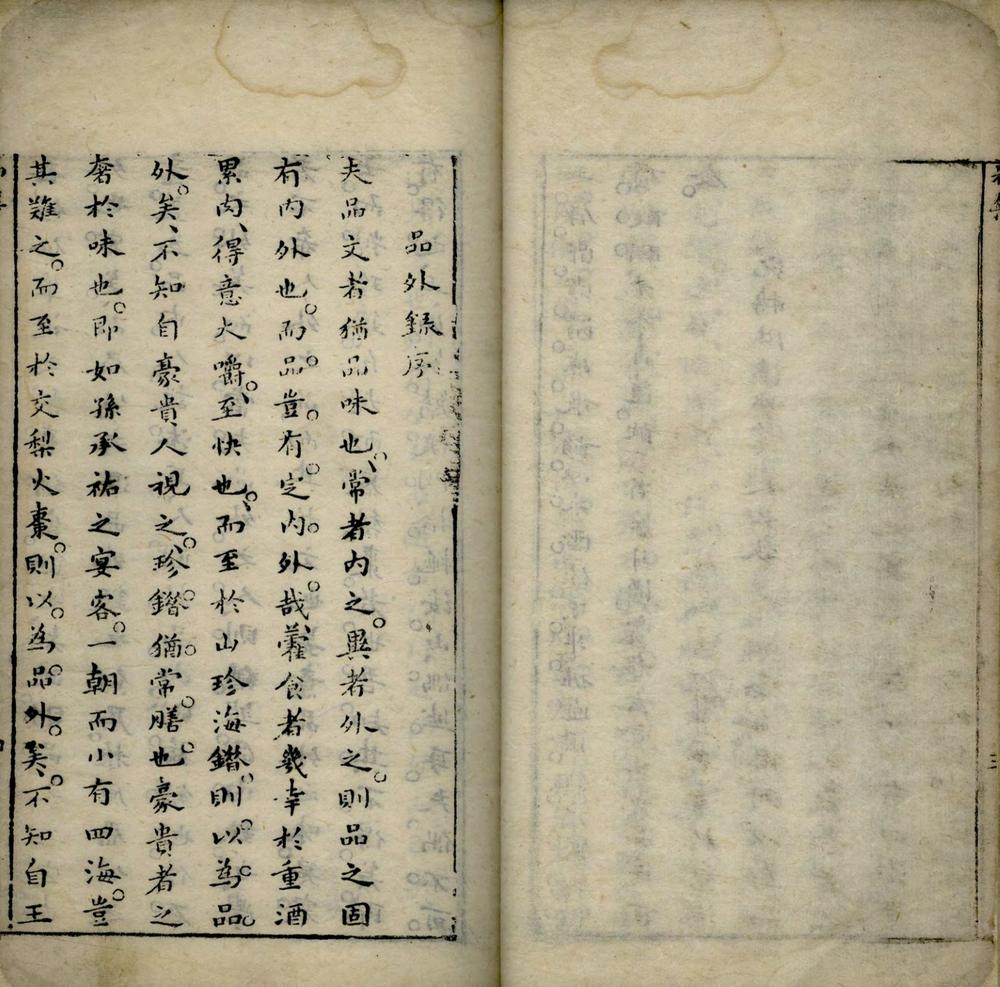 品外錄序
夫品文者猶品味也常者內之異者外之則品之固
有內外也而品豈有定內外哉藿食者幾幸於重酒
累肉得意大嚼至快也而至於山珍海錯則以為品
外矣不知自豪貴人視之珍錯猶常膳也豪貴者之
奢於味也即如孫承祐之宴客一朝而小有四海豈
其難之而至於交梨火棗則以為品外矣不知自王